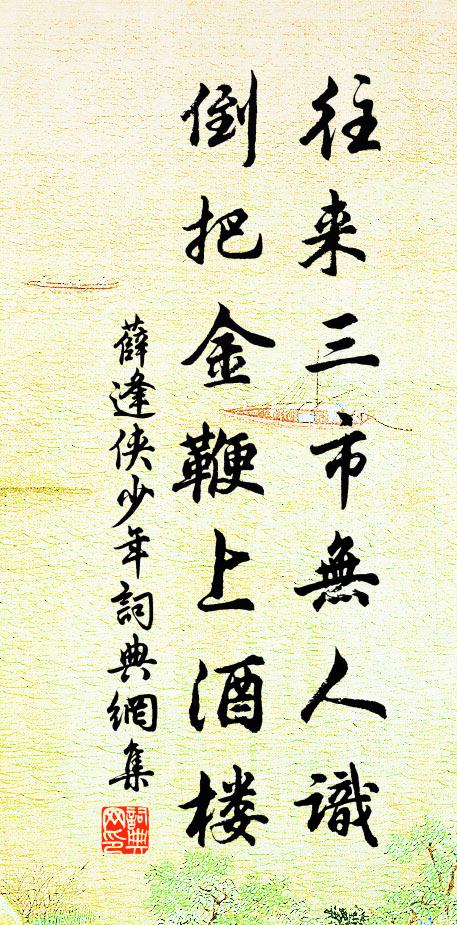 往来三市無人識
倒把金鞭上酒楼
薛逢俠少年詞典網集
詞典网印